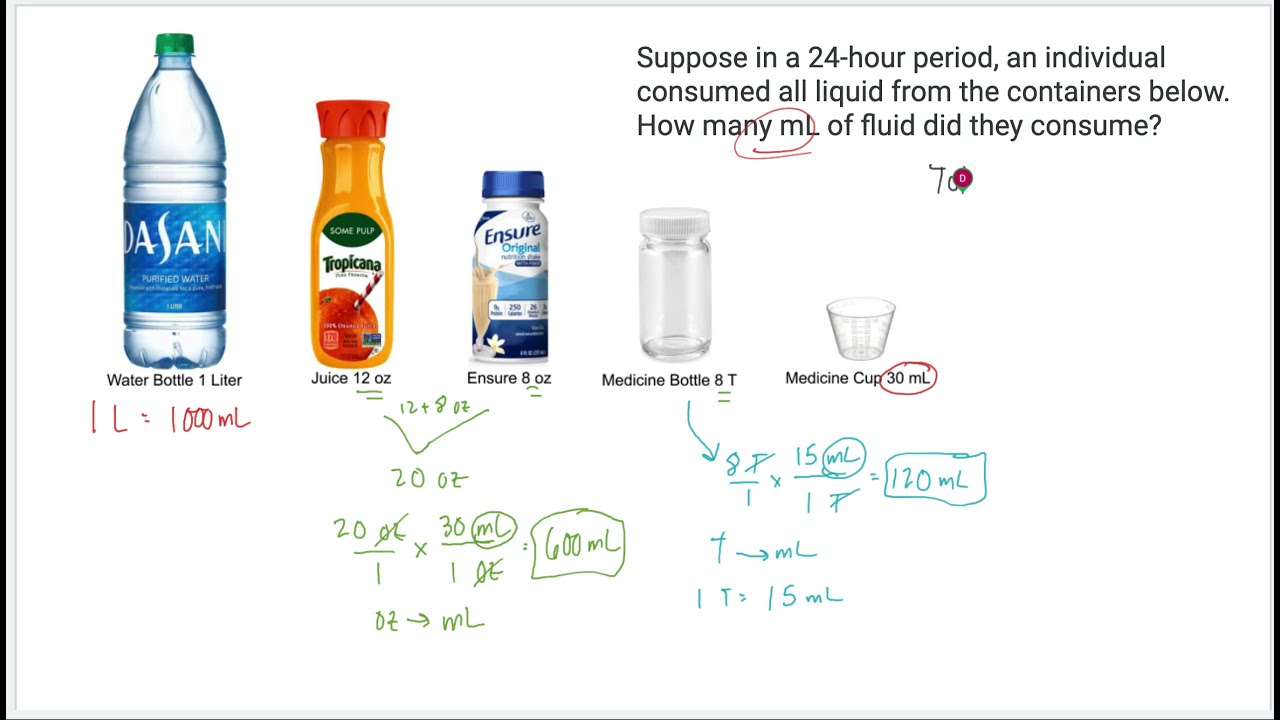 Suppose in a 24-hour period, an individual
consumed all liquid from the containers below.
How many mL of fluid did they consume?
To
D
DASANI
PURIFIED WATER
1 LITER
SOME PULP
Tropicana
PURE PREMIUM
100% ORANGE JUICE
Ensure
Original
nutrition shake
9g 250 26
Protein Calories
8 fl oz (237 mL)
Water Bottle 1 Liter
Juice 12 oz
Ensure 8 oz
Medicine Bottle 8 T
Medicine Cup 30 mL
1 L = 1000 mL
12 + 8 oz
20 oz
20 oz/1 x 30 mL/1 oz = 600 mL
oz → mL
8 T/1 x 15 mL/1 T = 120 mL
T → mL
1 T = 15 mL